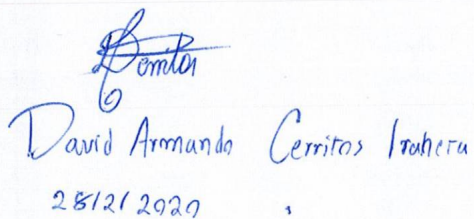 Cerritos
David Armando Cerritos Iraheta
28/2/2020